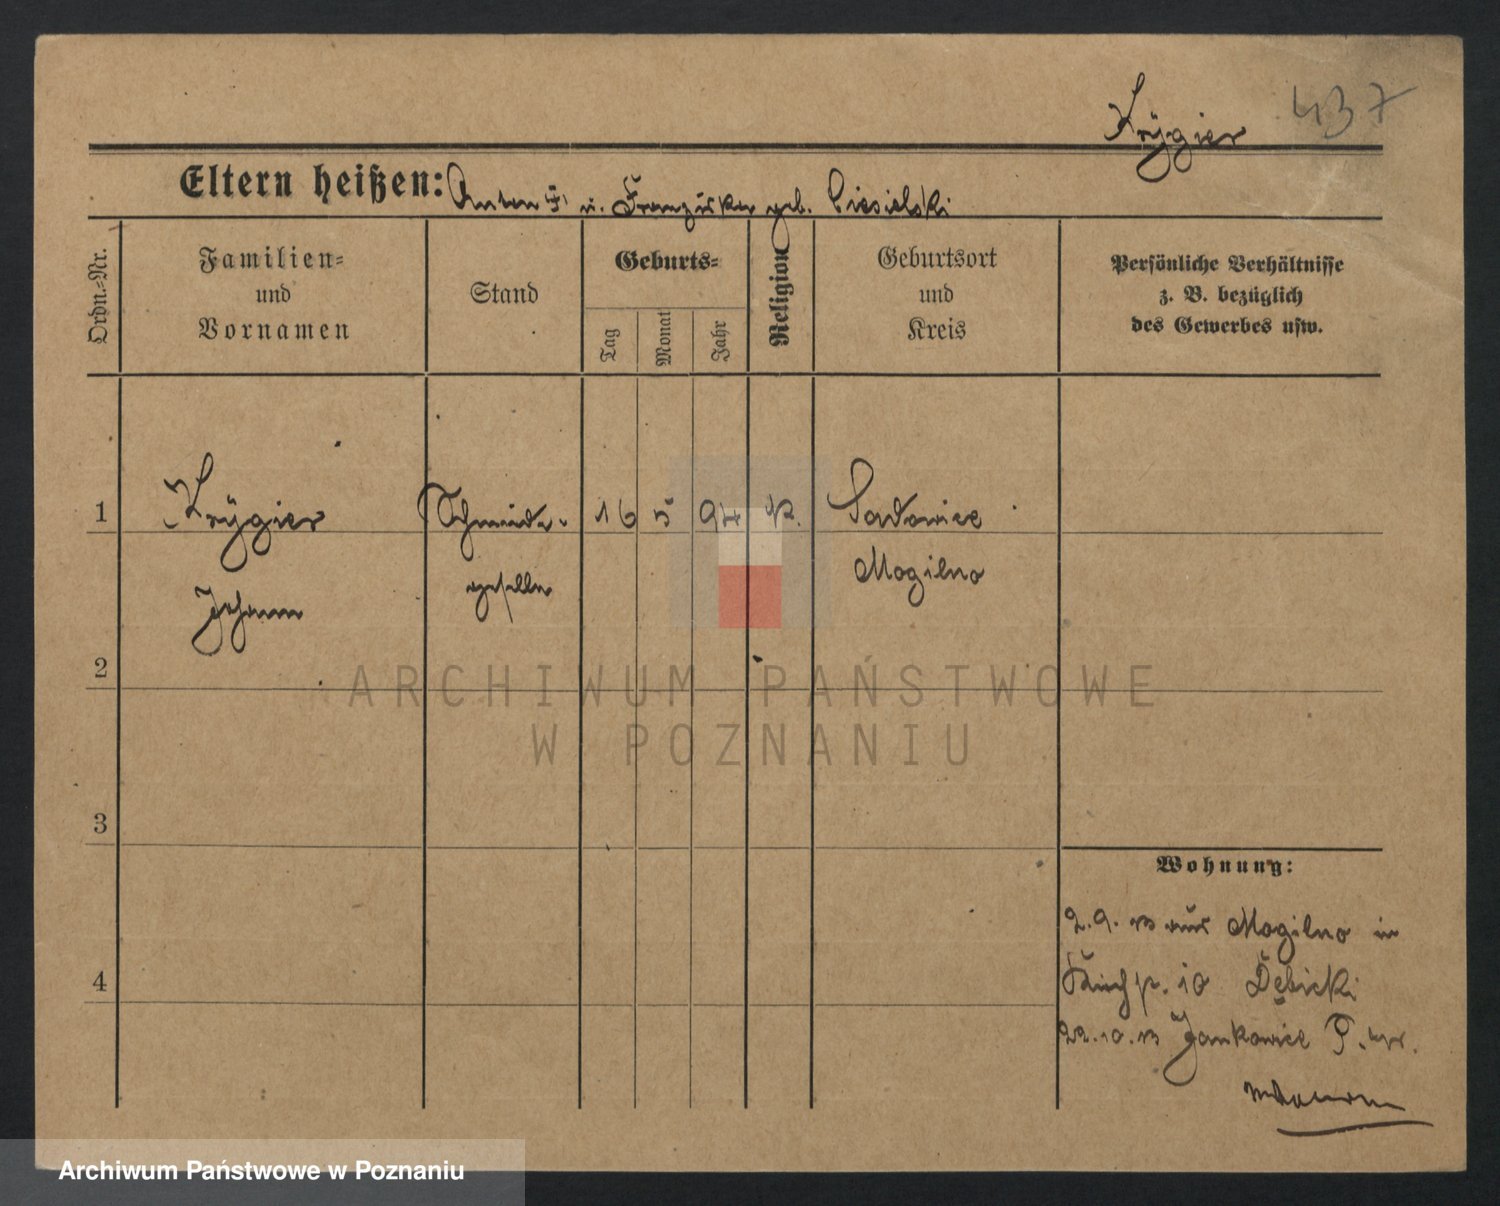 Krÿgier 437
Eltern heißen: Anton u. Franziska geb. Ciesielski
Ordn.-Nr.
Familien-
und
Vornamen
Stand
Geburts-
Tag
Monat
Jahr
Religion
Geburtsort
und
Kreis
Persönliche Verhältnisse
z. B. bezüglich
des Gewerbes usw.
1 Krÿgier Schmiede- 16 5 94 k. Sadowiec
Johann geselle Mogilno
2
3
4
Wohnung:
2.9.13 aus Mogilno in
10 Dębicki
22.10.13 Jankowice
ARCHIWUM PAŃSTWOWE
W POZNANIU
Archiwum Państwowe w Poznaniu